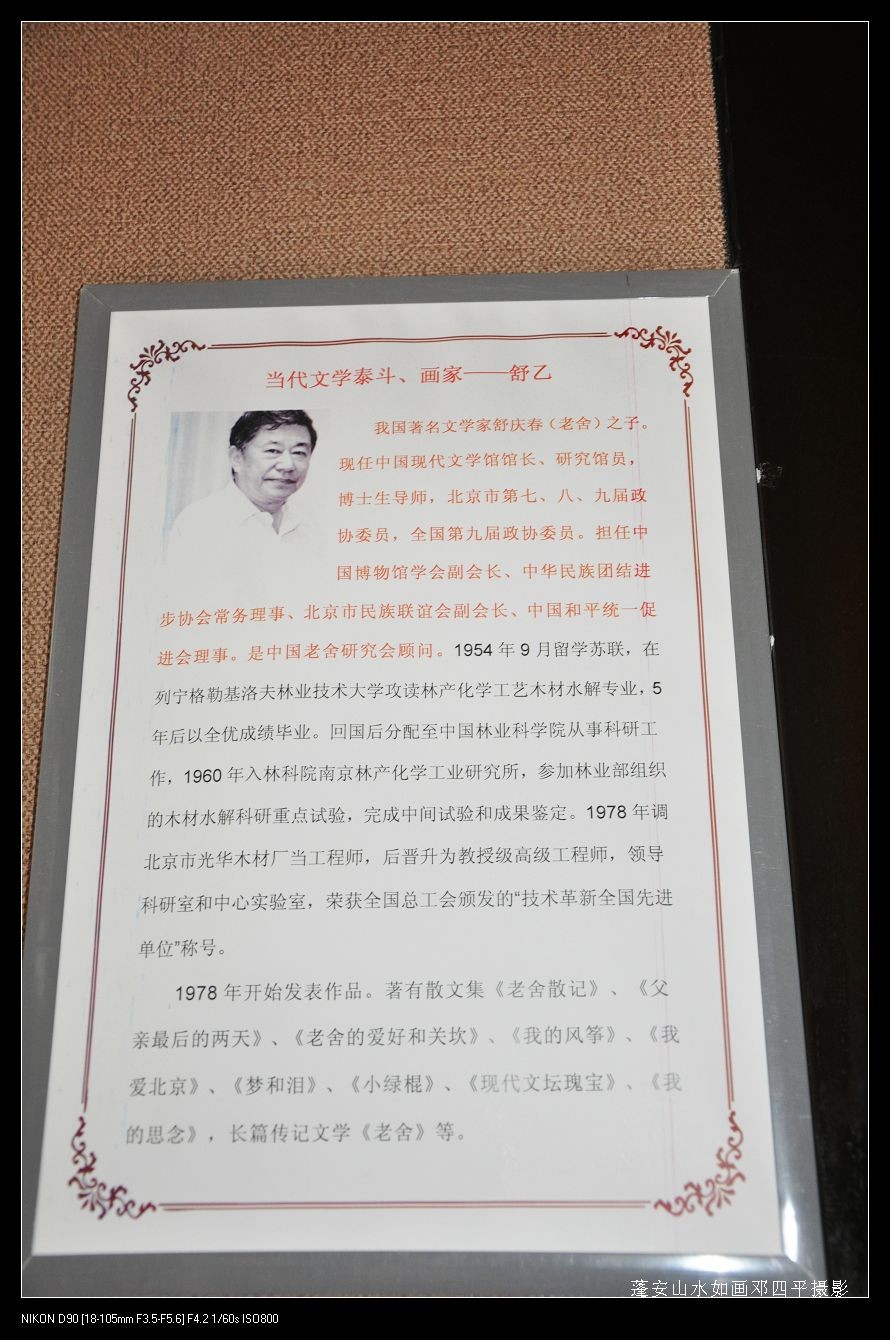 当代文学泰斗、画家——舒乙
我国著名文学家舒庆春（老舍）之子。
现任中国现代文学馆馆长、研究馆员，
博士生导师，北京市第七、八、九届政
协委员，全国第九届政协委员。担任中
国博物馆学会副会长、中华民族团结进
步协会常务理事、北京市民族联谊会副会长、中国和平统一促
进会理事。是中国老舍研究会顾问。1954 年 9 月留学苏联，在
列宁格勒基洛夫林业技术大学攻读林产化学工艺木材水解专业，5
年后以全优成绩毕业。回国后分配至中国林业科学院从事科研工
作，1960 年入林科院南京林产化学工业研究所，参加林业部组织
的木材水解科研重点试验，完成中间试验和成果鉴定。1978 年调
北京市光华木材厂当工程师，后晋升为教授级高级工程师，领导
科研室和中心实验室，荣获全国总工会颁发的“技术革新全国先进
单位”称号。
1978 年开始发表作品。著有散文集《老舍散记》、《父
亲最后的两天》、《老舍的爱好和关坎》、《我的风筝》、《我
爱北京》、《梦和泪》、《小绿棍》、《现代文坛瑰宝》、《我
的思念》，长篇传记文学《老舍》等。
蓬安山水如画邓四平摄影
NIKON D90 [18-105mm F3.5-F5.6] F4.2 1/60s ISO800